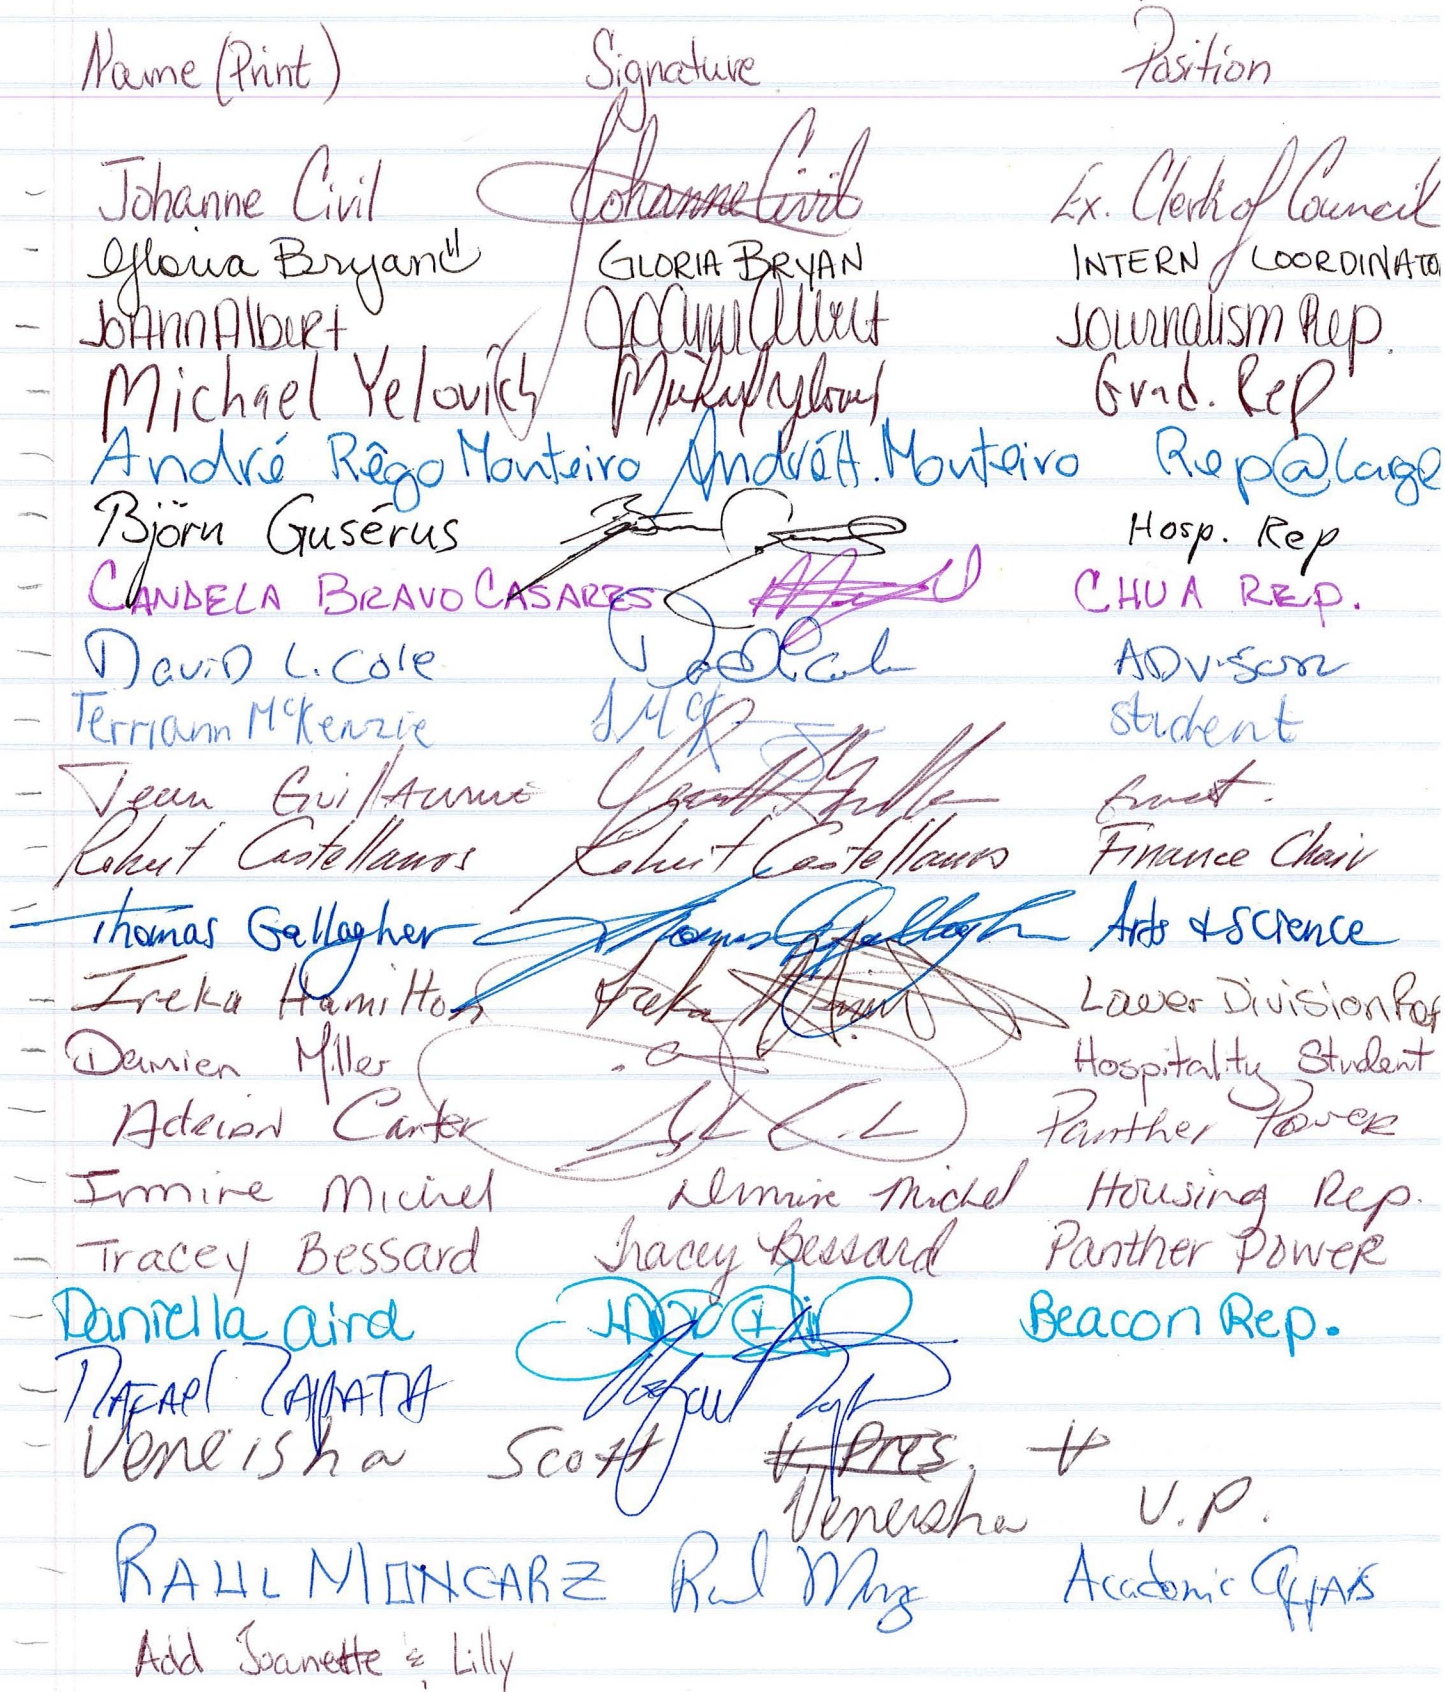 Name (Print) Signature Position
Johanne Civil Johanne Civil Ex. Clerk of Council
Gloria Bryan GLORIA BRYAN INTERN COORDINATO
JoAnn Albert JoAnn Albert Journalism Rep.
Michael Yelovich Grad. Rep
André Rêgo Monteiro André A. Monteiro Rep@Large
Björn Gusérus Hosp. Rep
CANDELA BRAVO CASARES CHUA REP.
DaviD L. Cole ADvisor
Terriann McKenzie student
Jean Guillaume
Robert Castellanos Robert Castellanos Finance Chair
Thomas Gallagher Thomas Gallagher Arts & Science
Ireka Hamilton Ireka Lower Division Rep
Damien Miller Hospitality Student
Adrian Carter Panther Power
Irmire Michel Michel Housing Rep.
Tracey Bessard Tracey Bessard Panther Power
Daniella aird Beacon Rep.
RAFAEl ZAPATA Rafael
Veneisha Scott V. Pres. V
Veneisha V.P.
RAUL MONCARZ Academic Affairs
Add Joanette & Lilly